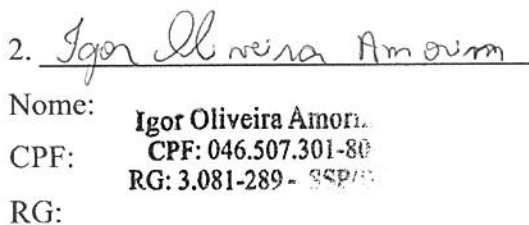 2. Igor Oliveira Amorim
Nome:
Igor Oliveira Amori
CPF:
CPF: 046.507.301-80
RG: 3.081-289 - SSP/
RG: